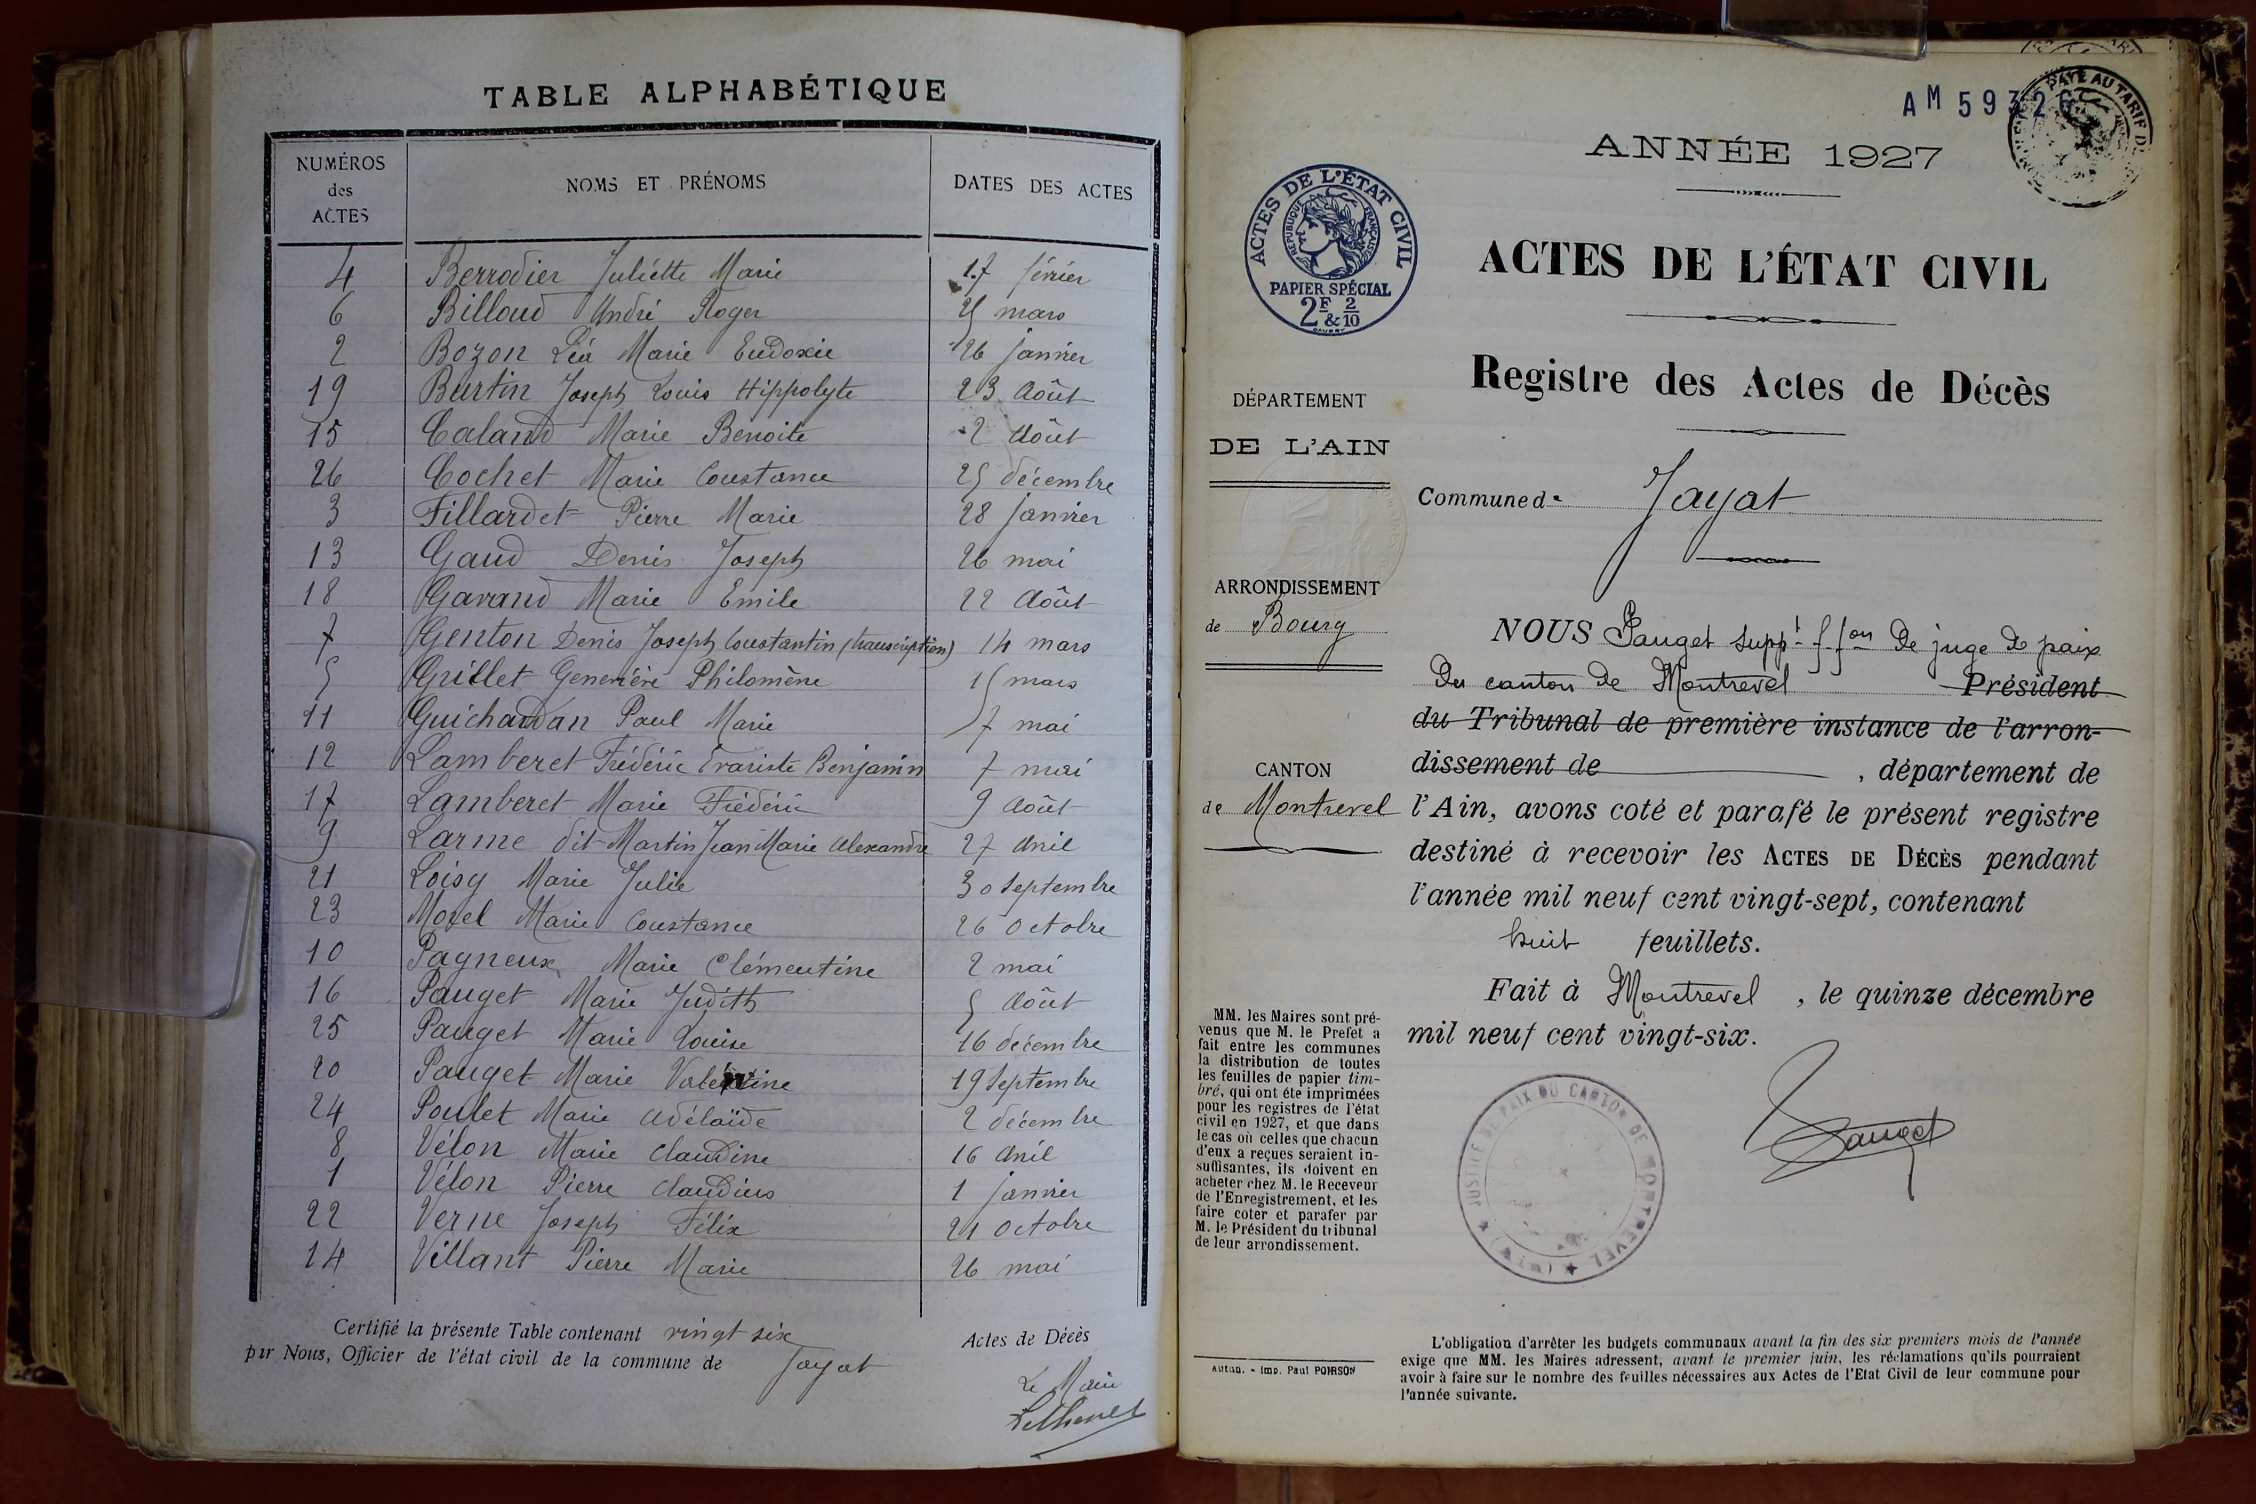 TABLE ALPHABÉTIQUE
NUMÉROS des ACTES NOMS ET PRÉNOMS DATES DES ACTES
4 Berrodier Juliette Marie 17 février
6 Billoud André Roger 25 mars
2 Bozon Léa Marie Eudoxie 26 janvier
19 Burtin Joseph Louis Hippolyte 23 Août
15 Caland Marie Benoite 2 Août
26 Cochet Marie Constance 25 décembre
3 Fillardet Pierre Marie 28 janvier
13 Gaud Denis Joseph 26 mai
18 Gavand Marie Emile 22 Août
7 Genton Denis Joseph Constantin (transcription) 14 mars
5 Grillet Geneviève Philomène 15 mars
11 Guichardan Paul Marie 7 mai
12 Lamberet Frédéric Evariste Benjamin 7 mai
17 Lamberet Marie Frédéric 9 Août
9 Larme dit Martin Jean Marie Alexandre 27 Avril
21 Loisy Marie Julie 30 Septembre
23 Morel Marie Constance 26 Octobre
10 Pagneux Marie Clémentine 2 mai
16 Pauget Marie Judith 5 Août
25 Pauget Marie Louise 16 décembre
20 Pauget Marie Valentine 19 Septembre
24 Poulet Marie Adélaïde 2 décembre
8 Vélon Marie Claudine 16 Avril
1 Vélon Pierre Claudius 1 janvier
22 Verne Joseph Félix 21 Octobre
14 Villant Pierre Marie 26 mai
Certifié la présente Table contenant vingt six Actes de Décès
par Nous, Officier de l'état civil de la commune de Jayat
Le Maire
AM 59326
PAYÉ AU TARIF D
ANNÉE 1927
ACTES DE L'ÉTAT CIVIL
RÉPUBLIQUE FRANÇAISE
PAPIER SPÉCIAL
2F & 2/10
ACTES DE L'ÉTAT CIVIL
Registre des Actes de Décès
DÉPARTEMENT
DE L'AIN
Commune d Jayat
ARRONDISSEMENT
de Bourg
CANTON
de Montrevel
NOUS Pauget suppt ffon de juge de paix
Du canton de Montrevel Président
du Tribunal de première instance de l'arron-
dissement de , département de
l'Ain, avons coté et parafé le présent registre
destiné à recevoir les ACTES DE DÉCÈS pendant
l'année mil neuf cent vingt-sept, contenant
huit feuillets.
Fait à Montrevel , le quinze décembre
mil neuf cent vingt-six.
Pauget
JUSTICE DE PAIX DU CANTON DE MONTREVEL
MM. les Maires sont pré-
venus que M. le Prefet a
fait entre les communes
la distribution de toutes
les feuilles de papier tim-
bré, qui ont été imprimées
pour les registres de l'état
civil en 1927, et que dans
le cas où celles que chacun
d'eux a reçues seraient in-
suffisantes, ils doivent en
acheter chez M. le Receveur
de l'Enregistrement, et les
faire coter et parafer par
M. le Président du tribunal
de leur arrondissement.
Autun. - Imp. Paul POIRSON
L'obligation d'arrêter les budgets communaux avant la fin des six premiers mois de l'année
exige que MM. les Maires adressent, avant le premier juin, les réclamations qu'ils pourraient
avoir à faire sur le nombre des feuilles nécessaires aux Actes de l'Etat Civil de leur commune pour
l'année suivante.